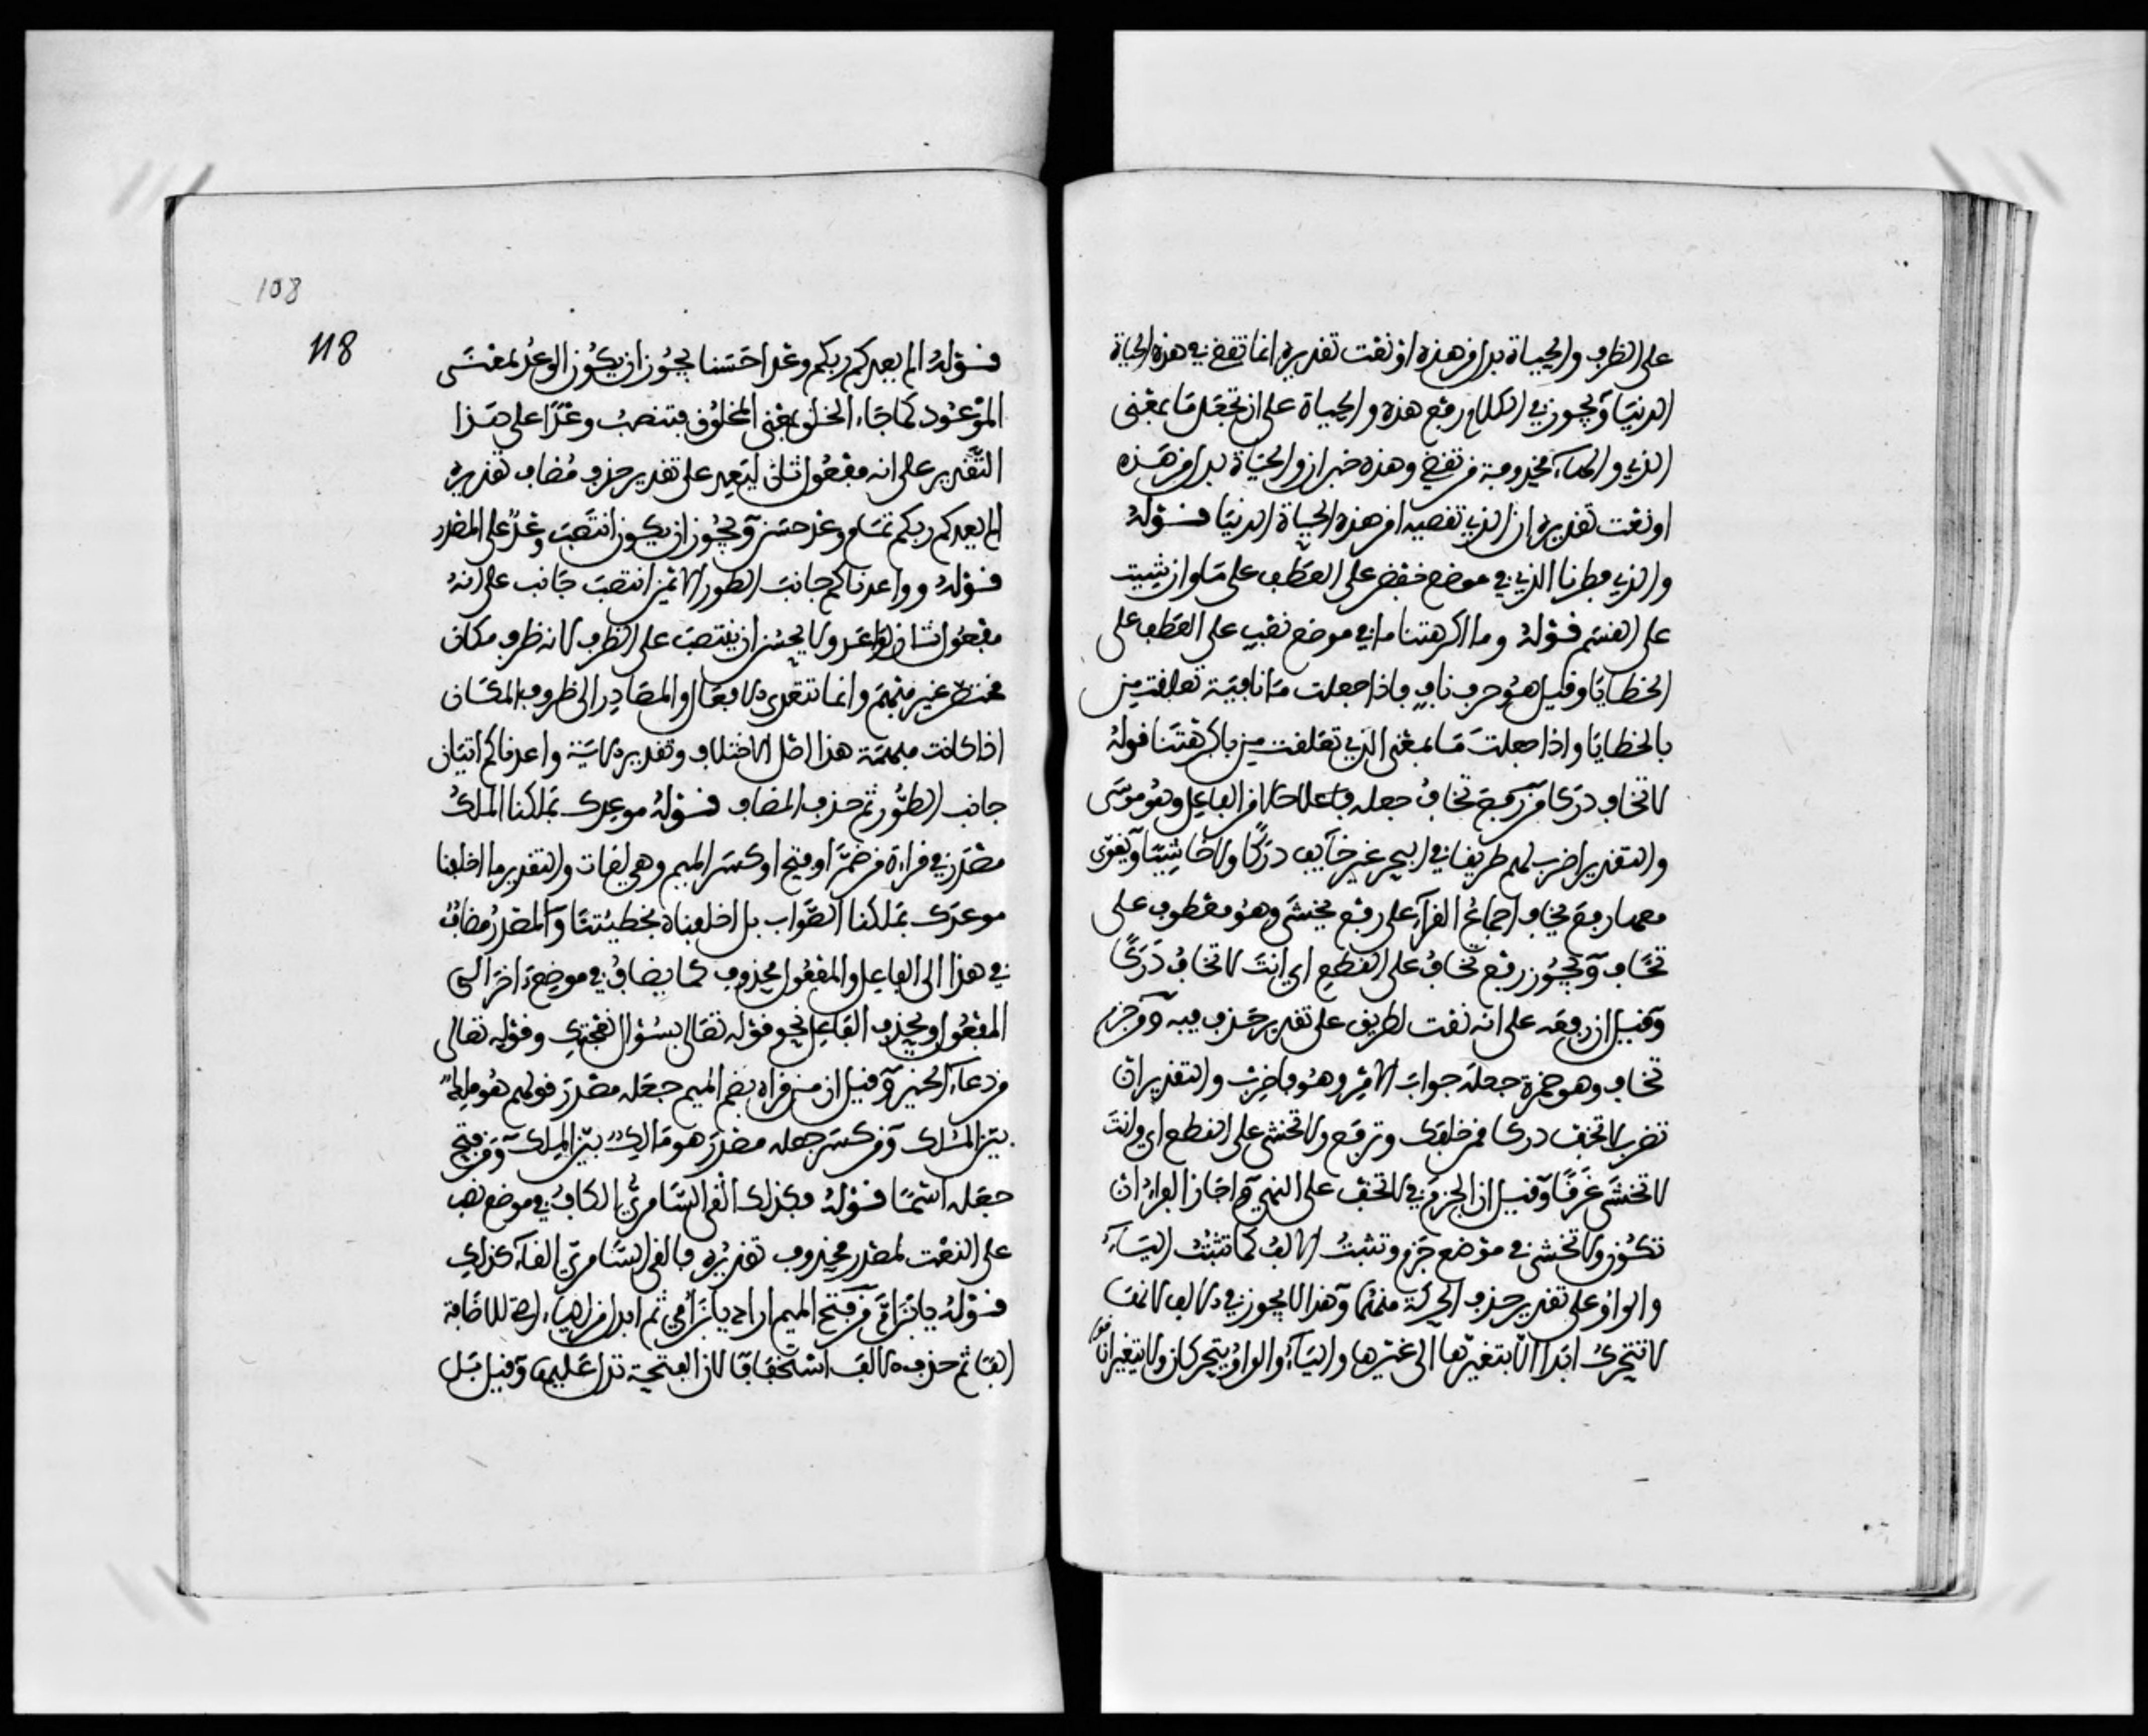 على الظرف والحياة بدل من هذه او نعت تقديره انما تقضي في هذه الحياة
الدنيا ويجوز في الكلام رفع هذه والحياة على ان تجعل ما بمعنى
الذي والهاء محذوفة من تقضي وهذه خبر ان والحياة بدل من هذه
او نعت تقديره ان الذي تقضيه امر هذه الحياة الدنيا قوله
والذي فطرنا الذي في موضع خفض على العطف على ما وان شيت
على القسم قوله وما اكرهتنا ما في موضع نصب على العطف على
الخطايا وقيل هو حرف ناف فاذا جعلت ما نافية تعلقت من
بالخطايا واذا جعلت ما بمعنى الذي تعلقت من باكرهتنا قوله
لا تخاف دركا من رفع تخاف جعله فاعلا حالا من الفاعل وهو موسى
والتقدير اضرب لهم طريقا في البحر غير خآيف دركا ولا خاشيا ويقوى
معها رفع يخاف اجماع القرآء على رفع يخشى وهو معطوف على
تخاف ويجوز رفع تخاف على القطع اي انت لا تخاف دركا
وقيل ان رفعه على انه نعت لطريق على تقدير حذف فيه ومن جزم
تخاف وهو حمزة جعله جواب الامر وهو فاضرب والتقدير ان
تضرب لا تخف دركا من خلفك وترفع ولا تخشى على القطع اي وانت
لا تخشى غرقا وقيل ان الجزم في لا تخف على النهي واجاز الفراء ان
تكون ولا تخشى في موضع جزم وتثبت الالف كما تثبت اليآء
والواو على تقدير حذف الحركة منهما وهذا لا يجوز في الالف لانها
لا تتحرك ابدا الا بتغيرها الى غيرها واليآء والواو يتحركان ولا يتغيران
108
118
قوله الم يعدكم ربكم وعدا حسنا يجوز ان يكون الوعد بمعنى
الموعود كما جاء الخلق بمعنى المخلوق فتنصب وعدا على هذا
التقدير على انه مفعول ثان ليعد على تقدير حذف مضاف تقديره
الم يعدكم ربكم تمام وعد حسن ويجوز ان يكون انتصب وعد على المصدر
قوله وواعدناكم جانب الطور الايمن انتصب جانب على انه
مفعول ثان لواعد ولا يحسن ان ينتصب على الظرف لانه ظرف مكان
مختص غير مبهم وانما تتعدى الافعال والمصادر الى ظروف المكان
اذا كانت مبهمة هذا اصل لا اختلاف وتقدير الاية واعدناكم اتيان
جانب الطور ثم حذف المضاف قوله موعدك بملكنا الملك
مصدر في قراءة من ضم او فتح او كسر الميم وهي لغات والتقدير ما اخلفنا
موعدك بملكنا الصواب بل اخلفناه بخطيئتنا والمصدر مضاف
في هذا الى الفاعل والمفعول محذوف كما يضاف في موضع اخر الى
المفعول ويحذف الفاعل نحو قوله تعالى بسؤال نعجتك وقوله تعالى
من دعاء الخير وقيل ان من قراه بضم الميم جعله مصدر قولهم هو ملك
بين الملك ومن كسر جعله مصدر هو مالك بين الملك ومن فتح
جعله اسما قوله فكذلك القى السامري الكاف في موضع نصب
على النعت لمصدر محذوف تقديره فالقى السامري القآء كذلك
قوله يا بن ام من فتح الميم اراد يا بن امي ثم ابدل من الياء التي للاضافة
الفا ثم حذف الالف استخفافا لان الفتحة تدل عليها وقيل بل